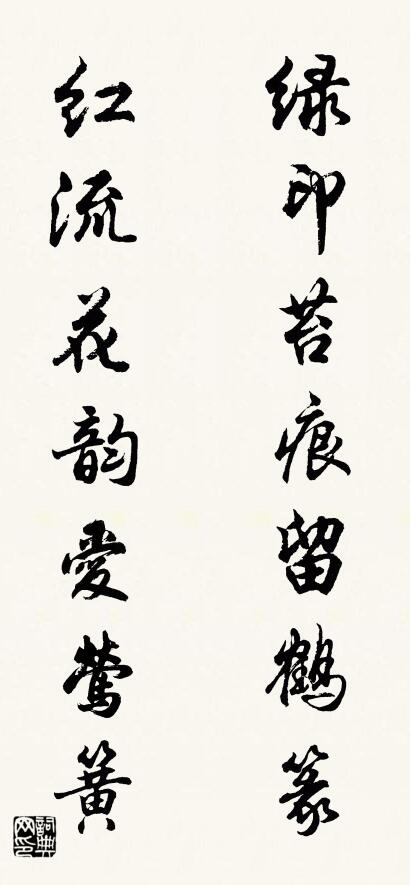 绿印苔痕留鹤篆
红流花韵爱莺簧
詞典网印